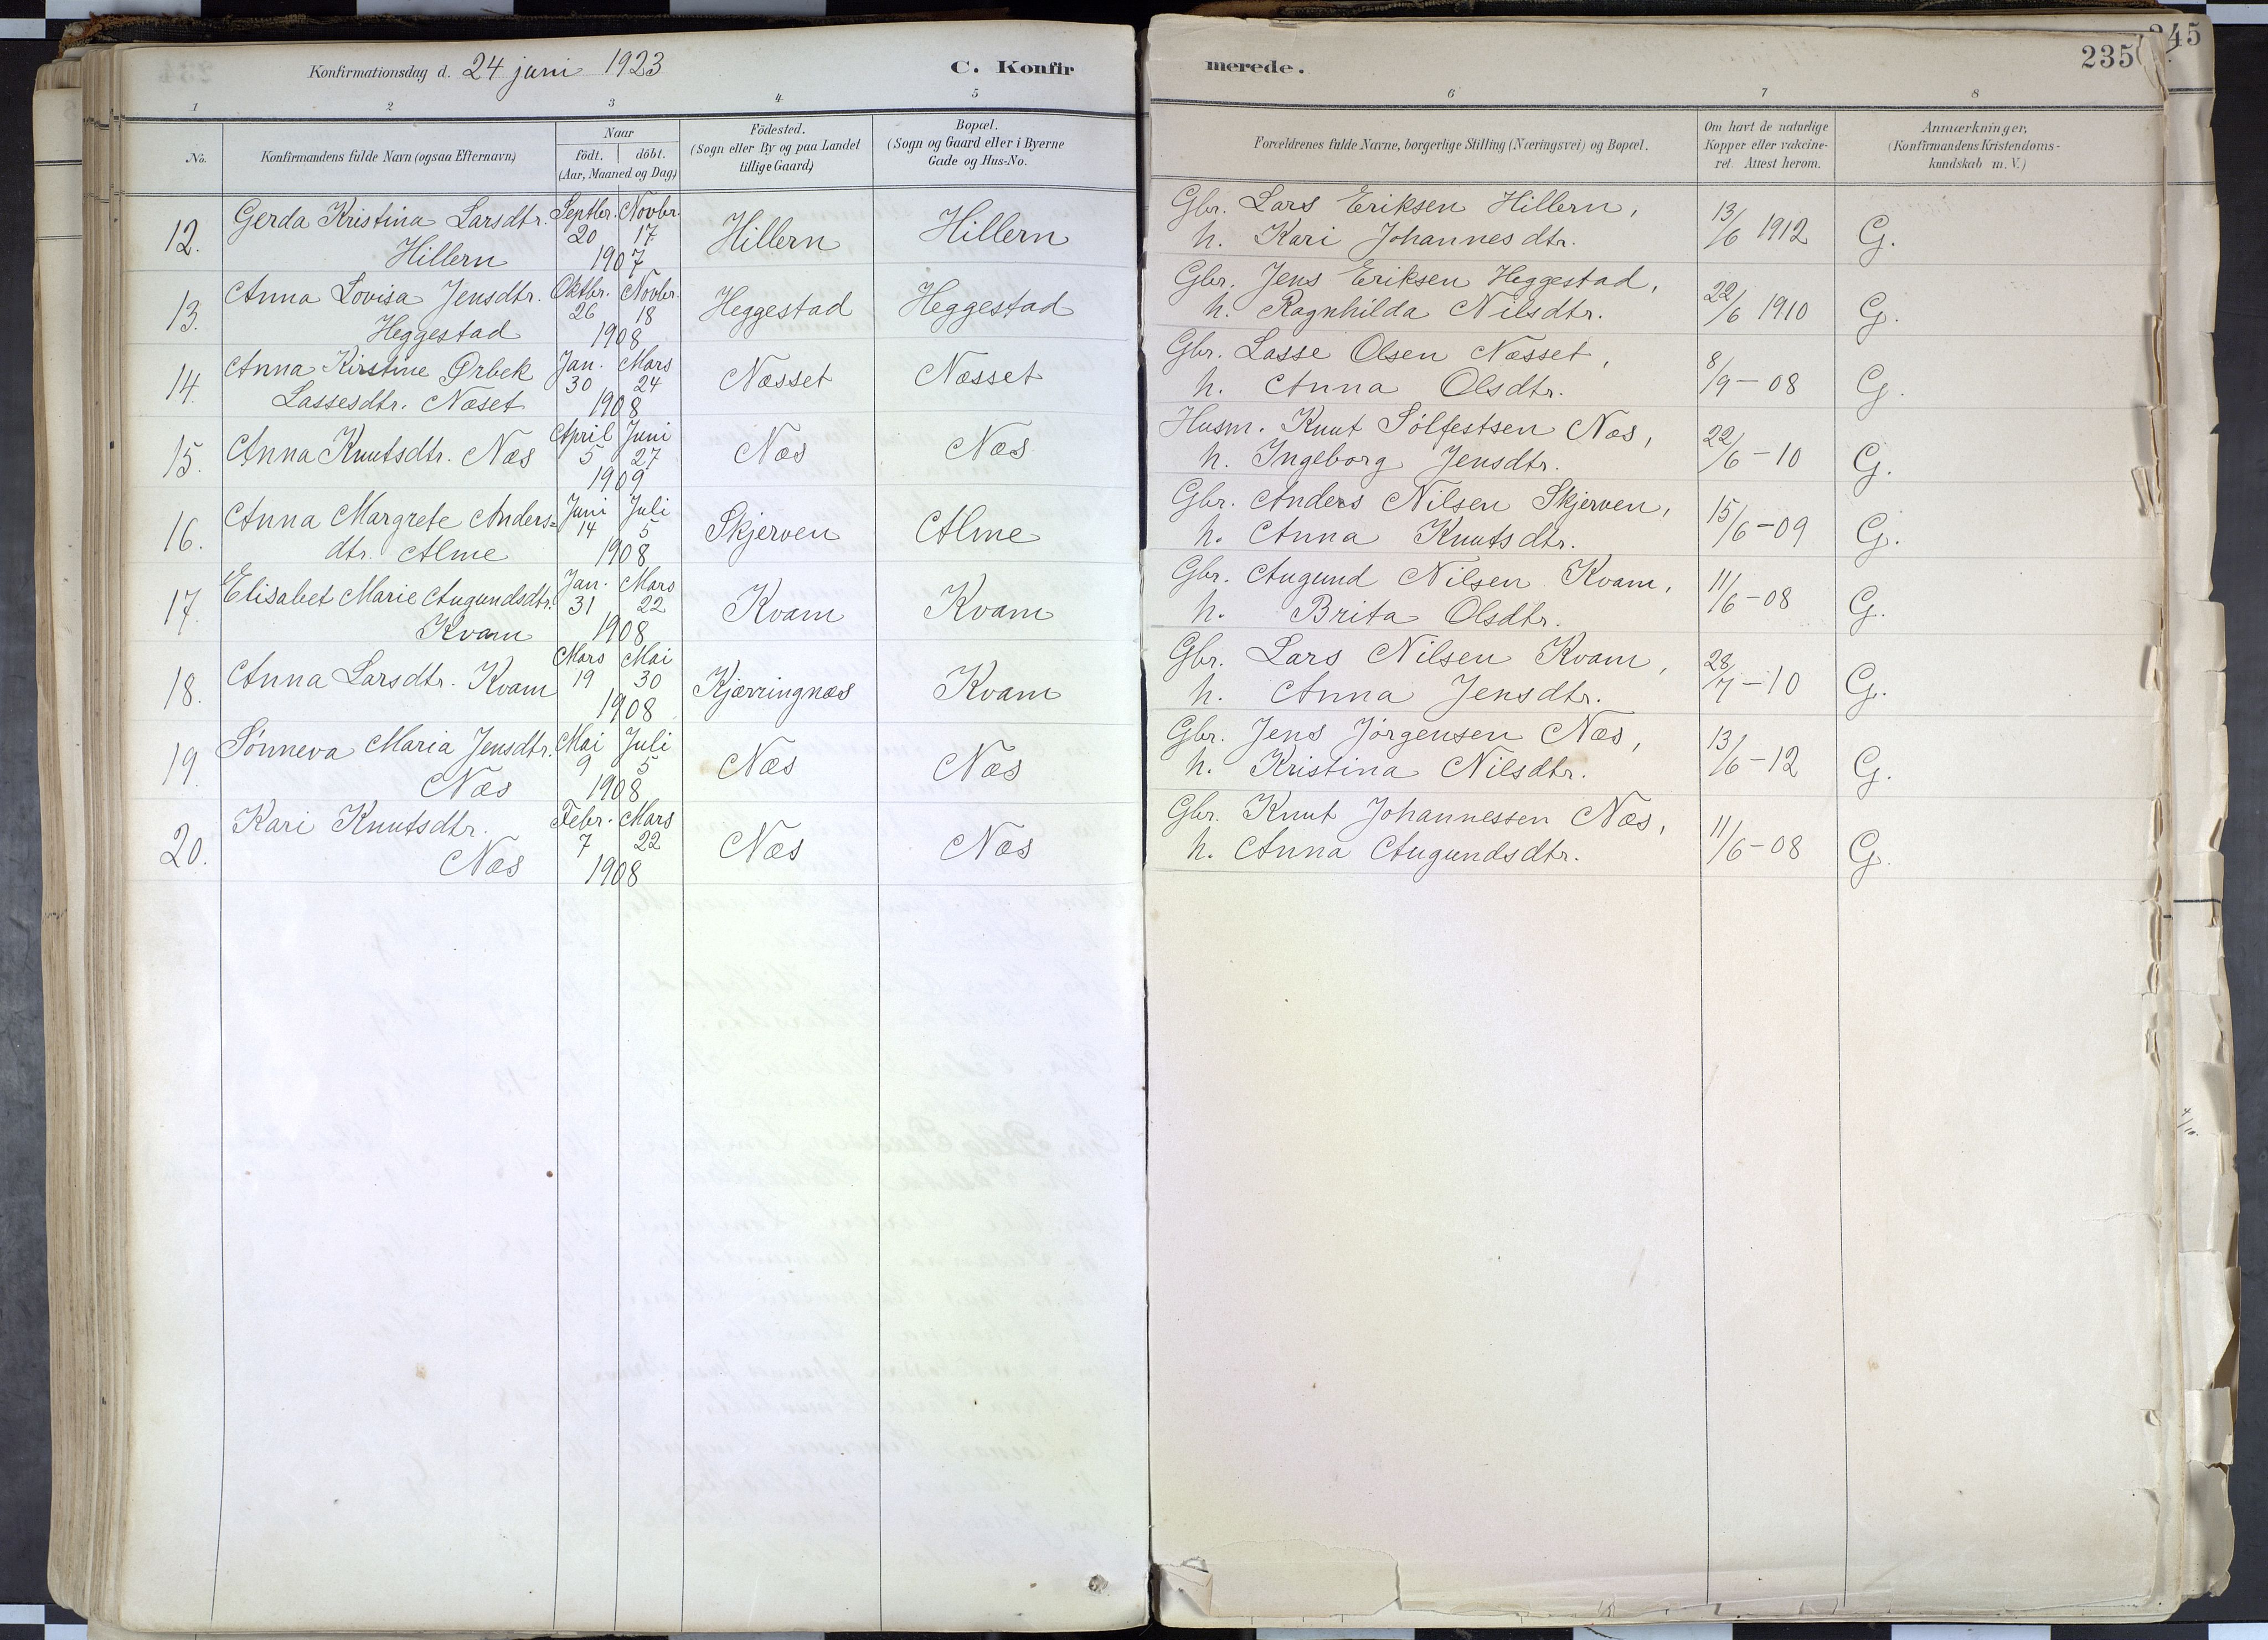 Konfirmationsdag d. 24 juni 1923 C. Konfir merede. 235
1 2 3 4 5 6 7 8
No.
Konfirmandens fulde Navn (ogsaa Efternavn)
Naar
födt. döbt.
(Aar, Maaned og Dag)
Födested.
(Sogn eller By og paa Landet
tillige Gaard)
Bopæl.
(Sogn og Gaard eller i Byerne
Gade og Hus-No.
Forældrenes fulde Navne, borgerlige Stilling (Næringsvei) og Bopæl.
Om havt de naturlige
Kopper eller vakcine-
ret. Attest herom.
Anmærkninger,
(Konfirmandens Kristendoms-
kundskab m. V.)
12. Gerda Kristina Larsdtr. Septbr. Novbr. Hillern Hillern Gbr. Lars Eriksen Hillern, 13/6 1912 G.
Hillern 20 17 1907 h. Kari Johannesdtr.
13. Anna Lovisa Jensdtr. Oktbr. Novbr. Heggestad Heggestad Gbr. Jens Eriksen Heggestad, 22/6 1910 G.
Heggestad 26 18 1908 h. Ragnhilda Nilsdtr.
14. Anna Kirstine Ørbek Jan. Mars Næsset Næsset Gbr. Lasse Olsen Næsset, 8/9-08 G.
Lassesdtr. Næset 30 24 1908 h. Anna Olsdtr.
15. Anna Knutsdtr. Næs April Juni Næs Næs Husm. Knut Sölfestsen Næs, 22/6-10 G.
5 27 1909 h. Ingeborg Jensdtr.
16. Anna Margrete Anders= Juni Juli Skjerven Alme Gbr. Anders Nilsen Skjerven, 15/6-09 G.
dtr. Alme 14 5 1908 h. Anna Knutsdtr.
17. Elisabet Marie Augundsdtr. Jan. Mars Kvam Kvam Gbr. Augund Nilsen Kvam, 11/6-08 G.
Kvam 31 22 1908 h. Brita Olsdtr.
18. Anna Larsdtr. Kvam Mars Mai Kjærringnæs Kvam Gbr. Lars Nilsen Kvam, 28/7-10 G.
19 30 1908 h. Anna Jensdtr.
19. Sönneva Maria Jensdtr. Mai Juli Næs Næs Gbr. Jens Jörgensen Næs, 13/6-12 G.
Næs 9 5 1908 h. Kristina Nilsdtr.
20. Kari Knutsdtr. Febr. Mars Næs Næs Gbr. Knut Johannessen Næs, 11/6-08 G.
Næs 7 22 1908 h. Anna Augundsdtr.